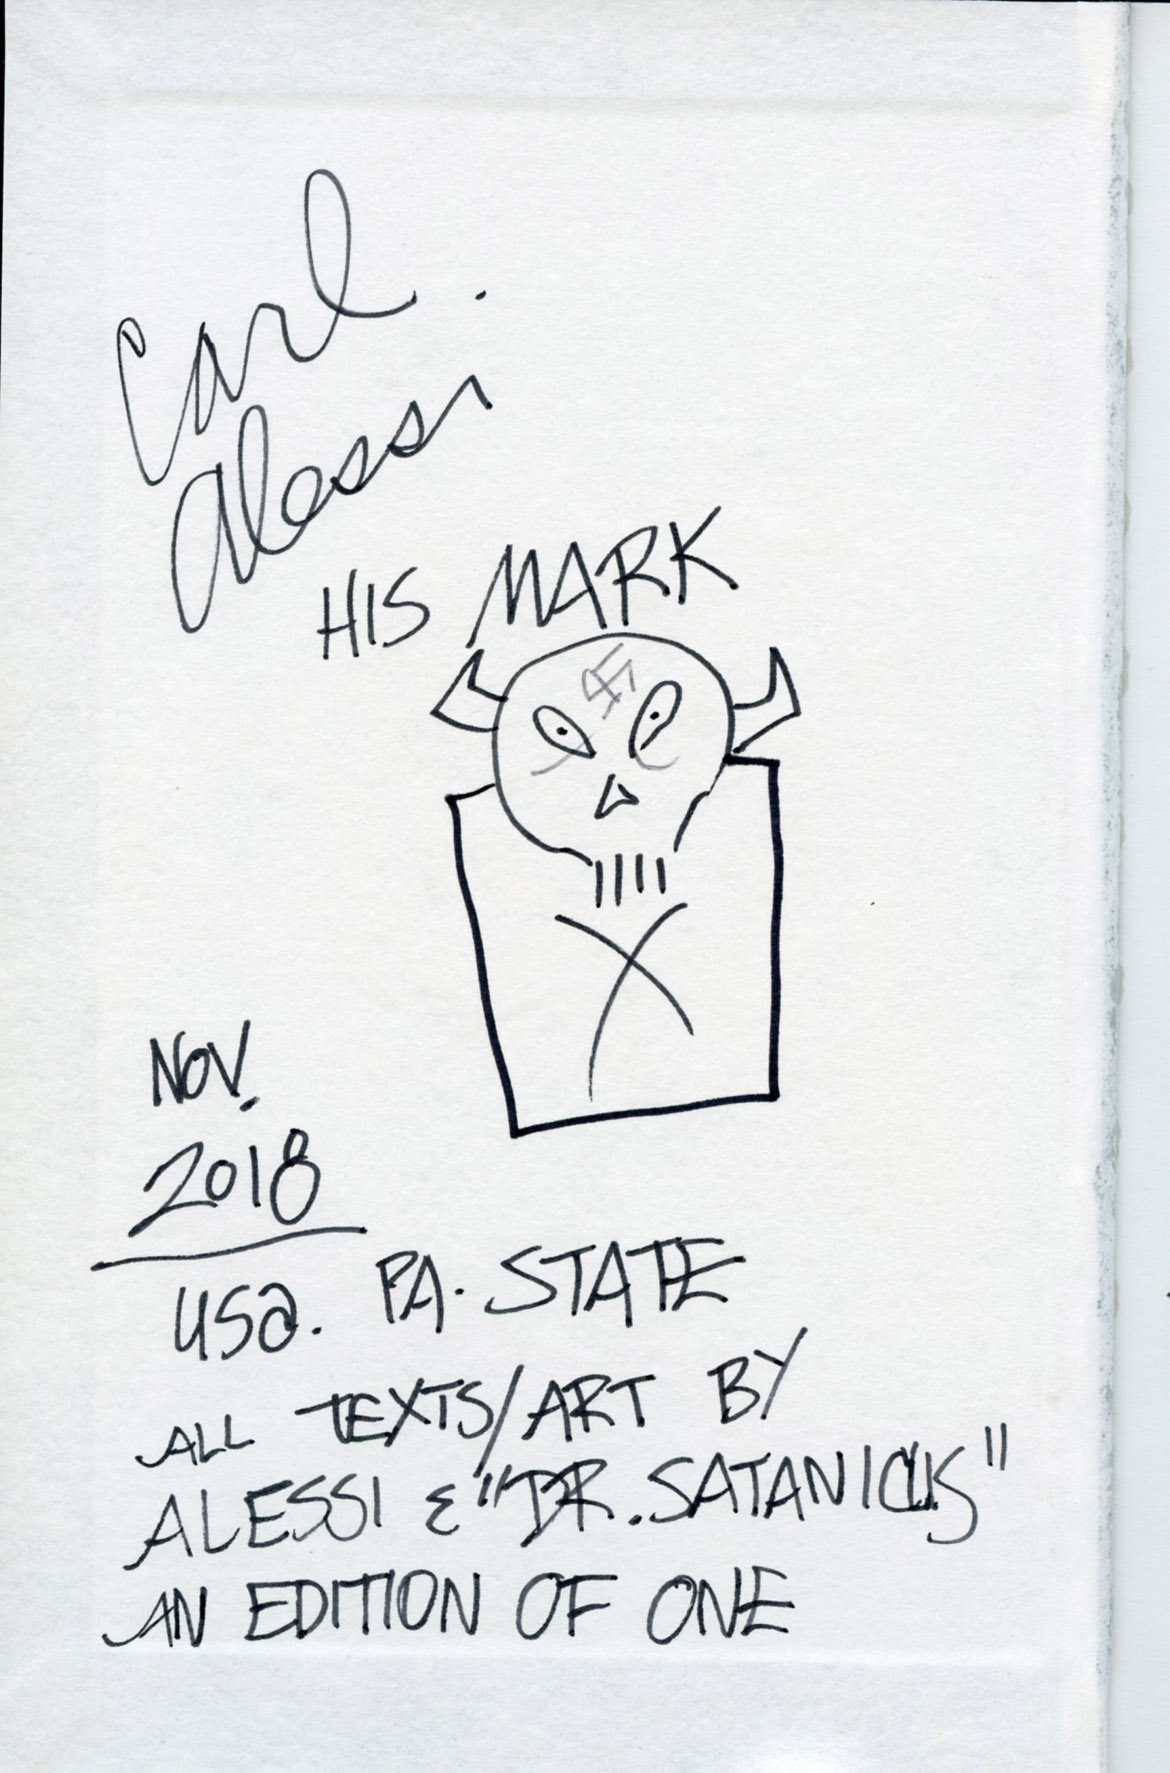 Carl.
Alessi
HIS MARK
NOV.
2018
USA. PA. STATE
ALL TEXTS/ART BY
ALESSI & "DR. SATANICUS"
AN EDITION OF ONE